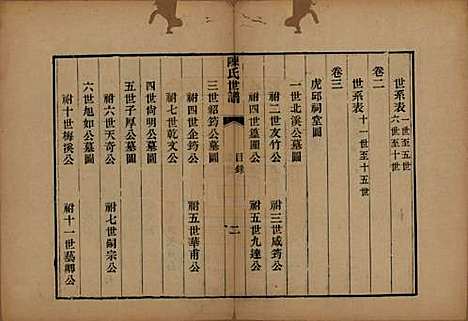 世系表 一世至五世
六世至十世
卷二
世系表 十一世至十五世
卷三
虎邱祠堂圖
一世北溪公墓圖
祔二世友竹公 祔三世咸筠公
祔四世篔圃公 祔五世九達公
陳氏世譜 目錄 二
三世紹筠公墓圖
祔四世企筠公 祔五世華甫公
祔七世乾文公
四世尚明公墓圖
五世子厚公墓圖
祔六世天奇公 祔七世嗣宗公
六世旭如公墓圖
祔十世梅溪公 祔十一世藝卿公